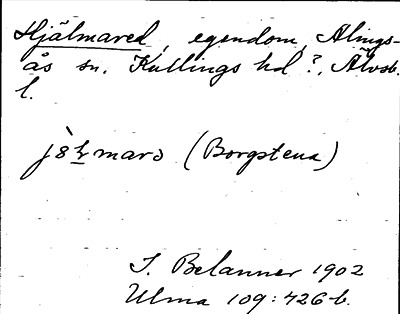 Hjälmared, egendom, Alings-
ås sn. Kullings hd ?, Älvsb.
l.
(Borgstena)
S. Belanner 1902
Ulma 109:426 b.